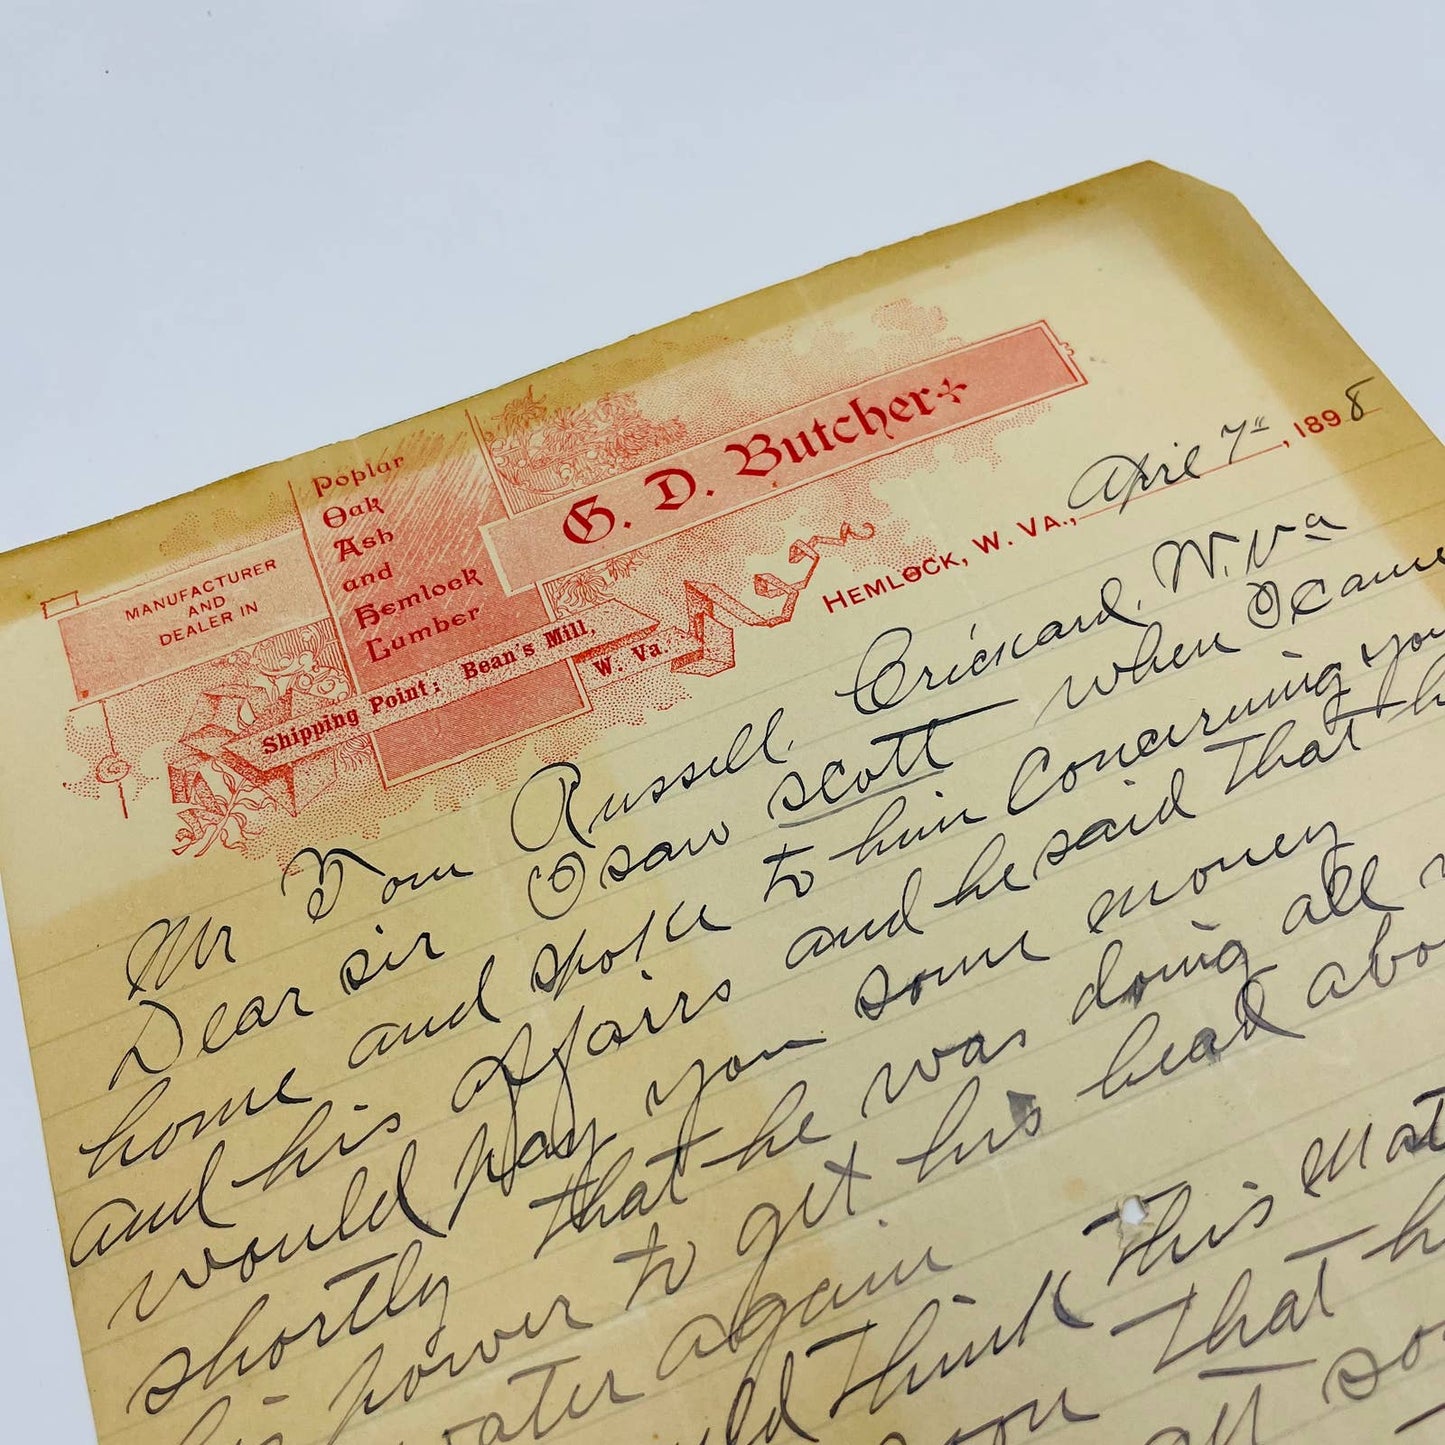 MANUFACTURER
AND
DEALER IN
Poplar
Oak
Ash
and
Hemlock
Lumber
G. D. Butcher
Shipping Point: Bean's Mill,
W. Va.
HEMLOCK, W. VA., April 7", 1898
Mr Tom Russell, Crickard, W. Va
Dear sir I saw scott when I came
home and spoke to him Concerning you
and his affairs and he said that h
would pay you some money
shortly that he was doing all
his power to get his head abo
water again
ld think this mat
oon that h